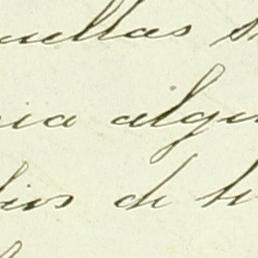 uellas s
ia algu
bios de t